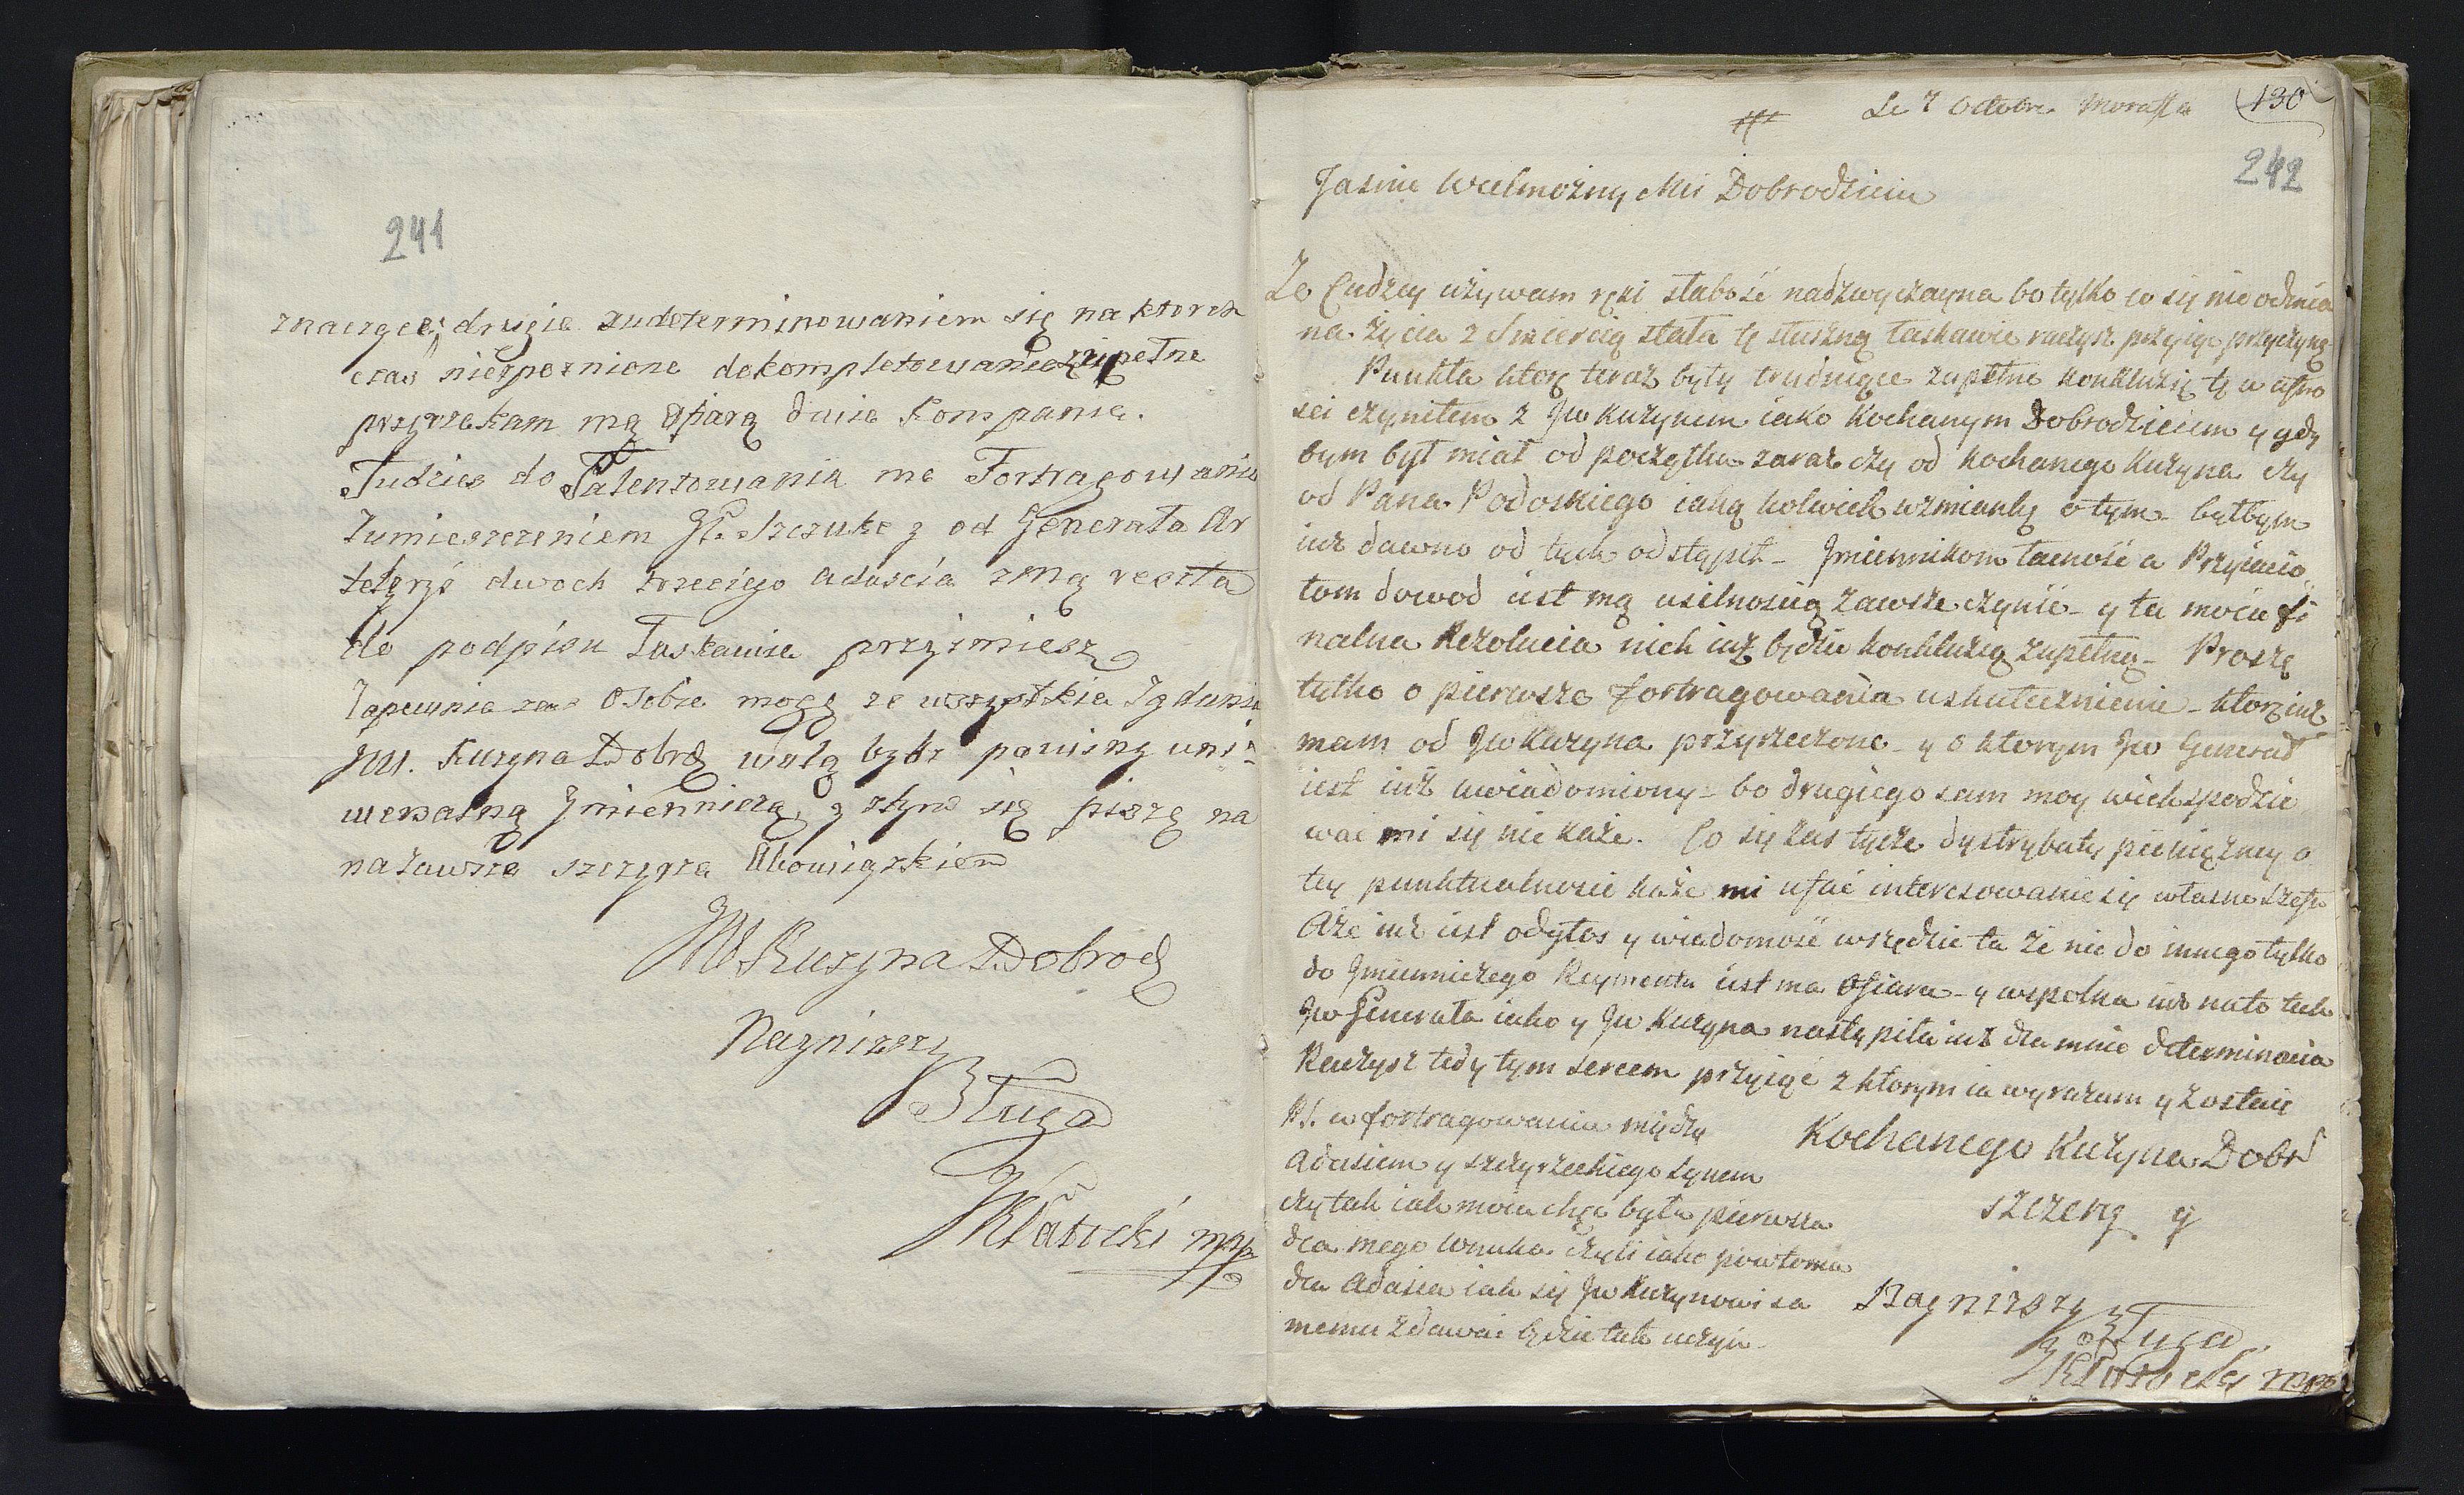 241
znaczące; drugie zudeterminowaniem się na ktorch
czas niespoznione dekompletowanie zupełne
przyrzekam mą ofiarą dwie Kompanie.
Tudziez do Patentowania me Fortragowanie
Zumieszczeniem JP. Szczukę y od Generała Ar
telerji dwoch trzeciego Adascia z mą resztą
do podpisu Łaskawie przyimiesz
Zapewnic zas o sobie mogę ze wszystkie Żądania
JW. Kuzyna Dobrdz wolą będą powinną uni-
wersalną Jmienniczą, z czym się piszę na
na zawsze szczyrze Obowiązkiem
JW Kuzyna Dobrodz
Nayniższy
Sługa
JKłosucki mpp
Le 7 Octobre Morassa
130
242
Jasnie Wielmożny Mci Dobrodzieiu
Ze Cudzey używam ręki słabość nadzwyczayna bo tylko co się nie odmia
na życia z Smiercią stała tę słuszną łaskawie raczysz przyiąc przyczynę
Punkta ktore teraz były trudniące zupełne konkluzię tę w ufno
sci czyniłem z JW Kuzynem iako Kochanym Dobrodzieiem y gdy
bym był miał od początku zaraz czy od kochanego Kuzyna czy
od Pana Podoskiego iaką kolwiek wzmiankę o tym byłbym
iuż dawno od tych odstąpił - Jmiennikom łacność a Przyiacio
łom dowod iest mą usilnoscią zawsze czynić - y ta moia fi
nalna Rezolucia niech iuż będzie konkluzią zupełną - Proszę
tylko o pierwsze fortragowania uskutecznienie - ktore iuż
mam od JW Kuzyna przyrzeczone - y o ktorym JW Generał
iest iuż uwiadomiony - bo drugiego sam moy wiek spodzie
wać mi się nie każe. Co się zas tycze dystrybuty pieniężney o
tey punktualnosci każe mi ufać interesowanie się własne Szefa
Aże iuż iest odgłos y wiadomość wszędzie ta że nie do innego tylko
do Jmienniczego Regimentu iest ma ofiara - y wspolna iuż nato tak
JW Generała iako y JW Kuzyna nastąpiła iuż dla mnie determinacia
Raczysz tedy tym sercem przyiąć z ktorym ia wyrażam y zostaię
Kochanego Kuzyna Dobr
szczery y
Nayniższy
Sługa
JKłosucki mpp
PS. w fortragowaniu między
Adasiem y szczyrzeckiego synem
czy tak iak moia chęć była pierwsza
dla mego wnuka czyli iako powtorna
dla Adasia iak się JW Kuzynowi sa
memu zdawać będzie tak uczyń